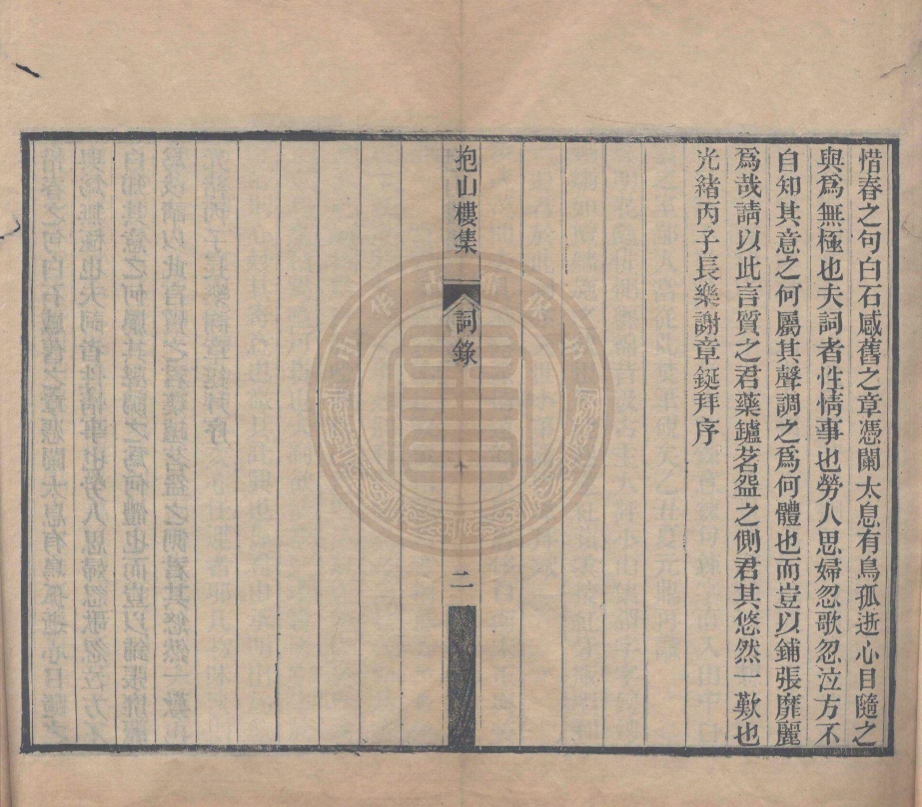 惜春之句白石感舊之章憑闌太息有鳥孤逝心目隨之
與爲無極也夫詞者性情事也勞人思婦忽歌忽泣方不
自知其意之何屬其聲調之爲何體也而豈以鋪張靡麗
爲哉請以此言質之君藥鑪茗盌之側君其悠然一歎也
光緒丙子長樂謝章鋌拜序
抱山樓集
詞錄
二